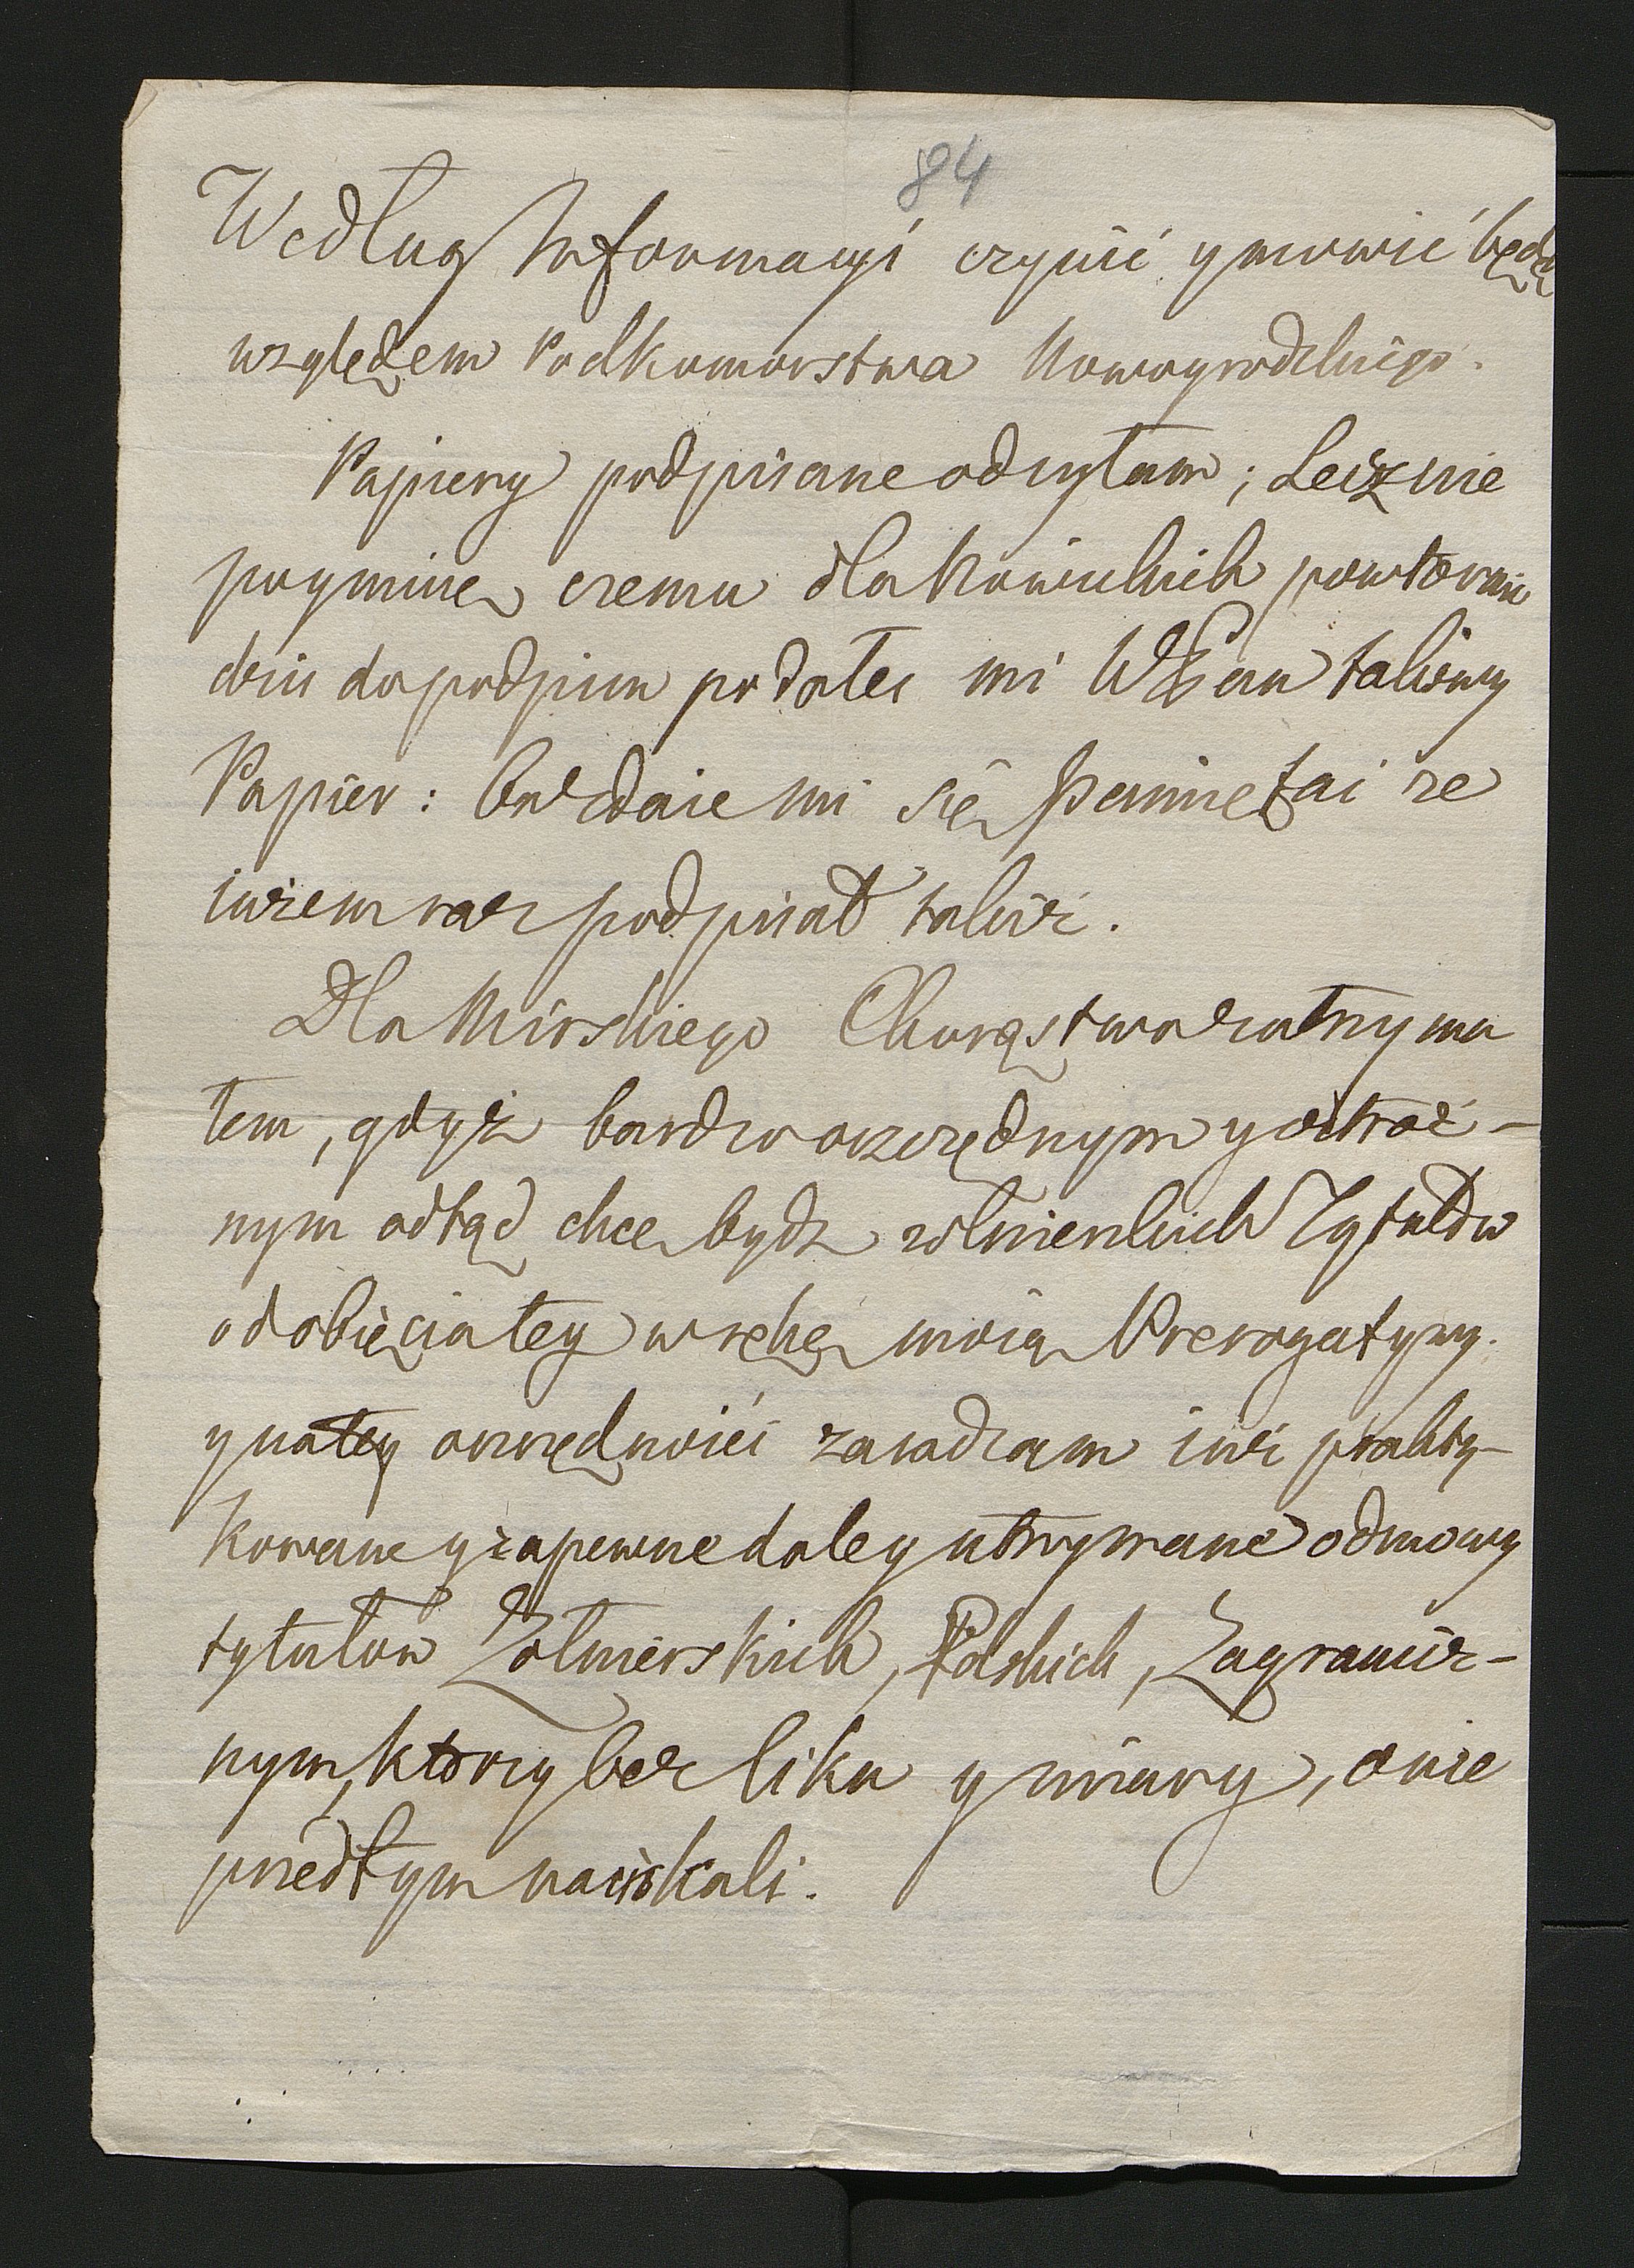 84
Według Informacyi czynić y mowic będę
względem Podkomorstwa Nowogrodzkiego.
Papiery podpisane odsyłam; Lecz nie
poymuię czemu dla powtornie
dziś do podpisu podałeś mi WPan takowy
Papier: bo zdaie mi się pamiętać że
iużem raz podpisał takiż.
Dla Mirskiego Chorąstwa zatrzyma
łem, gdyż bardzo oszczędnym y ostroż-
nym odtąd chcę bydz Tytułów
od obięcia tey w rękę moią Prerogatywy.
y na tey oszczędności zasadzam iuż prakty-
kowane y zapewne daley utrzymane odmowy
tytułow Zołnierskich, Polskich, Zagranicz-
nym, ktorzy bez liku y miary, o nie
przedtym naciskali.